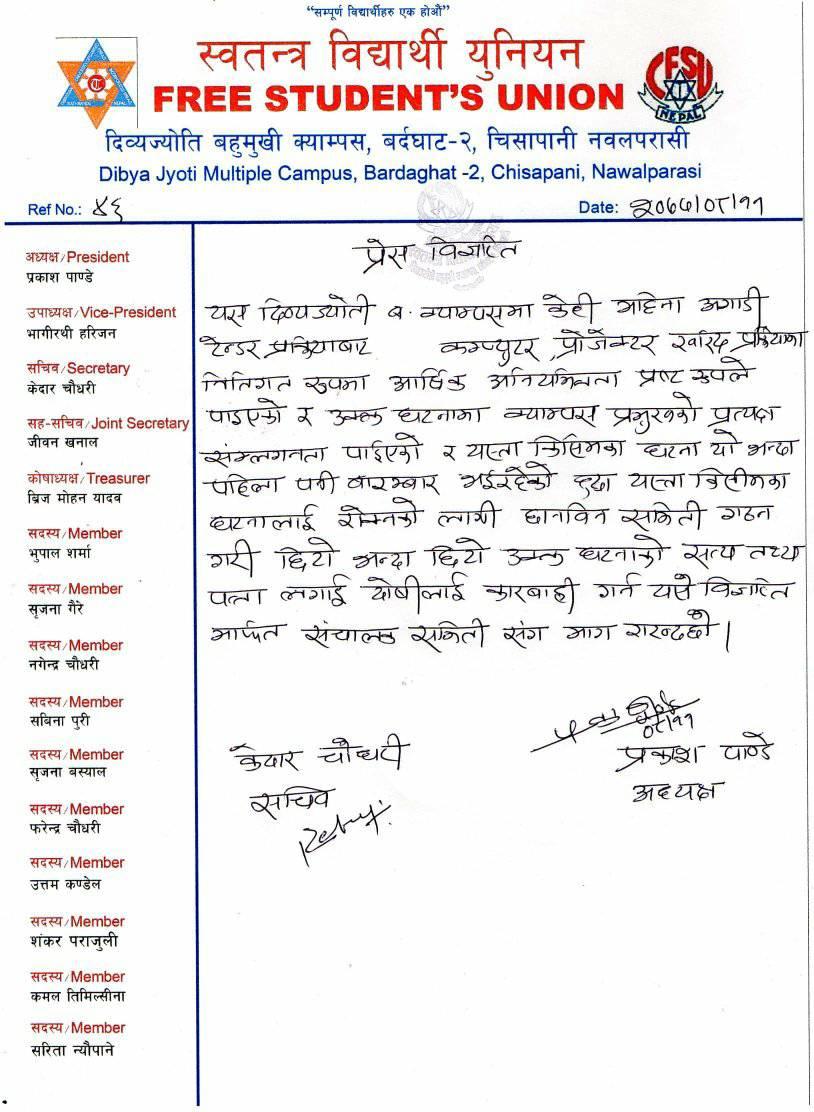 “सम्पूर्ण विद्यार्थीहरु एक होऔं”
स्वतन्त्र विद्यार्थी युनियन
FREE STUDENT'S UNION
CFSU
NEPAL
दिव्यज्योति बहुमुखी क्याम्पस, बर्दघाट-२, चिसापानी नवलपरासी
Dibya Jyoti Multiple Campus, Bardaghat -2, Chisapani, Nawalparasi
Ref No.: ४६
Date: २०६७/०८/११
अध्यक्ष/President
प्रकाश पाण्डे
उपाध्यक्ष/Vice-President
भागीरथी हरिजन
सचिव/Secretary
केदार चौधरी
सह-सचिव/Joint Secretary
जीवन खनाल
कोषाध्यक्ष/Treasurer
ब्रिज मोहन यादव
सदस्य/Member
भुपाल शर्मा
सदस्य/Member
सृजना गैरे
सदस्य/Member
नगेन्द्र चौधरी
सदस्य/Member
सबिना पुरी
सदस्य/Member
सृजना बस्याल
सदस्य/Member
फरेन्द्र चौधरी
सदस्य/Member
उत्तम कण्डेल
सदस्य/Member
शंकर पराजुली
सदस्य/Member
कमल तिमिल्सीना
सदस्य/Member
सरिता न्यौपाने
प्रेस विज्ञप्ति
यस दिव्यज्योती ब. क्याम्पसमा केही महिना अगाडी
टेन्डर प्रक्रियाबाट कम्प्युटर, प्रोजेक्टर खरिद प्रक्रियाका
नितिगत रुपमा आर्थिक अनियमितता प्रष्ट रुपले
पाइएको र उक्त घटनामा क्याम्पस प्रमुखको प्रत्यक्ष
संम्लगनता पाईएको र यस्ता किसिमका घटना यो भन्दा
पहिला पनी बारम्बार भईरहेको हुदा यस्ता किसीमका
घटनालाई रोक्नको लागी छानविन समिती गठन
गरी छिटो भन्दा छिटो उक्त घटनाको सत्य तथ्य
पत्ता लगाई दोषीलाई कारबाही गर्न यसै विज्ञप्ति
मार्फत संचालक समिती संग माग गरन्दछौ।
०८/११
केदार चौधरी
सचिव
प्रकाश पाण्डे
अध्यक्ष